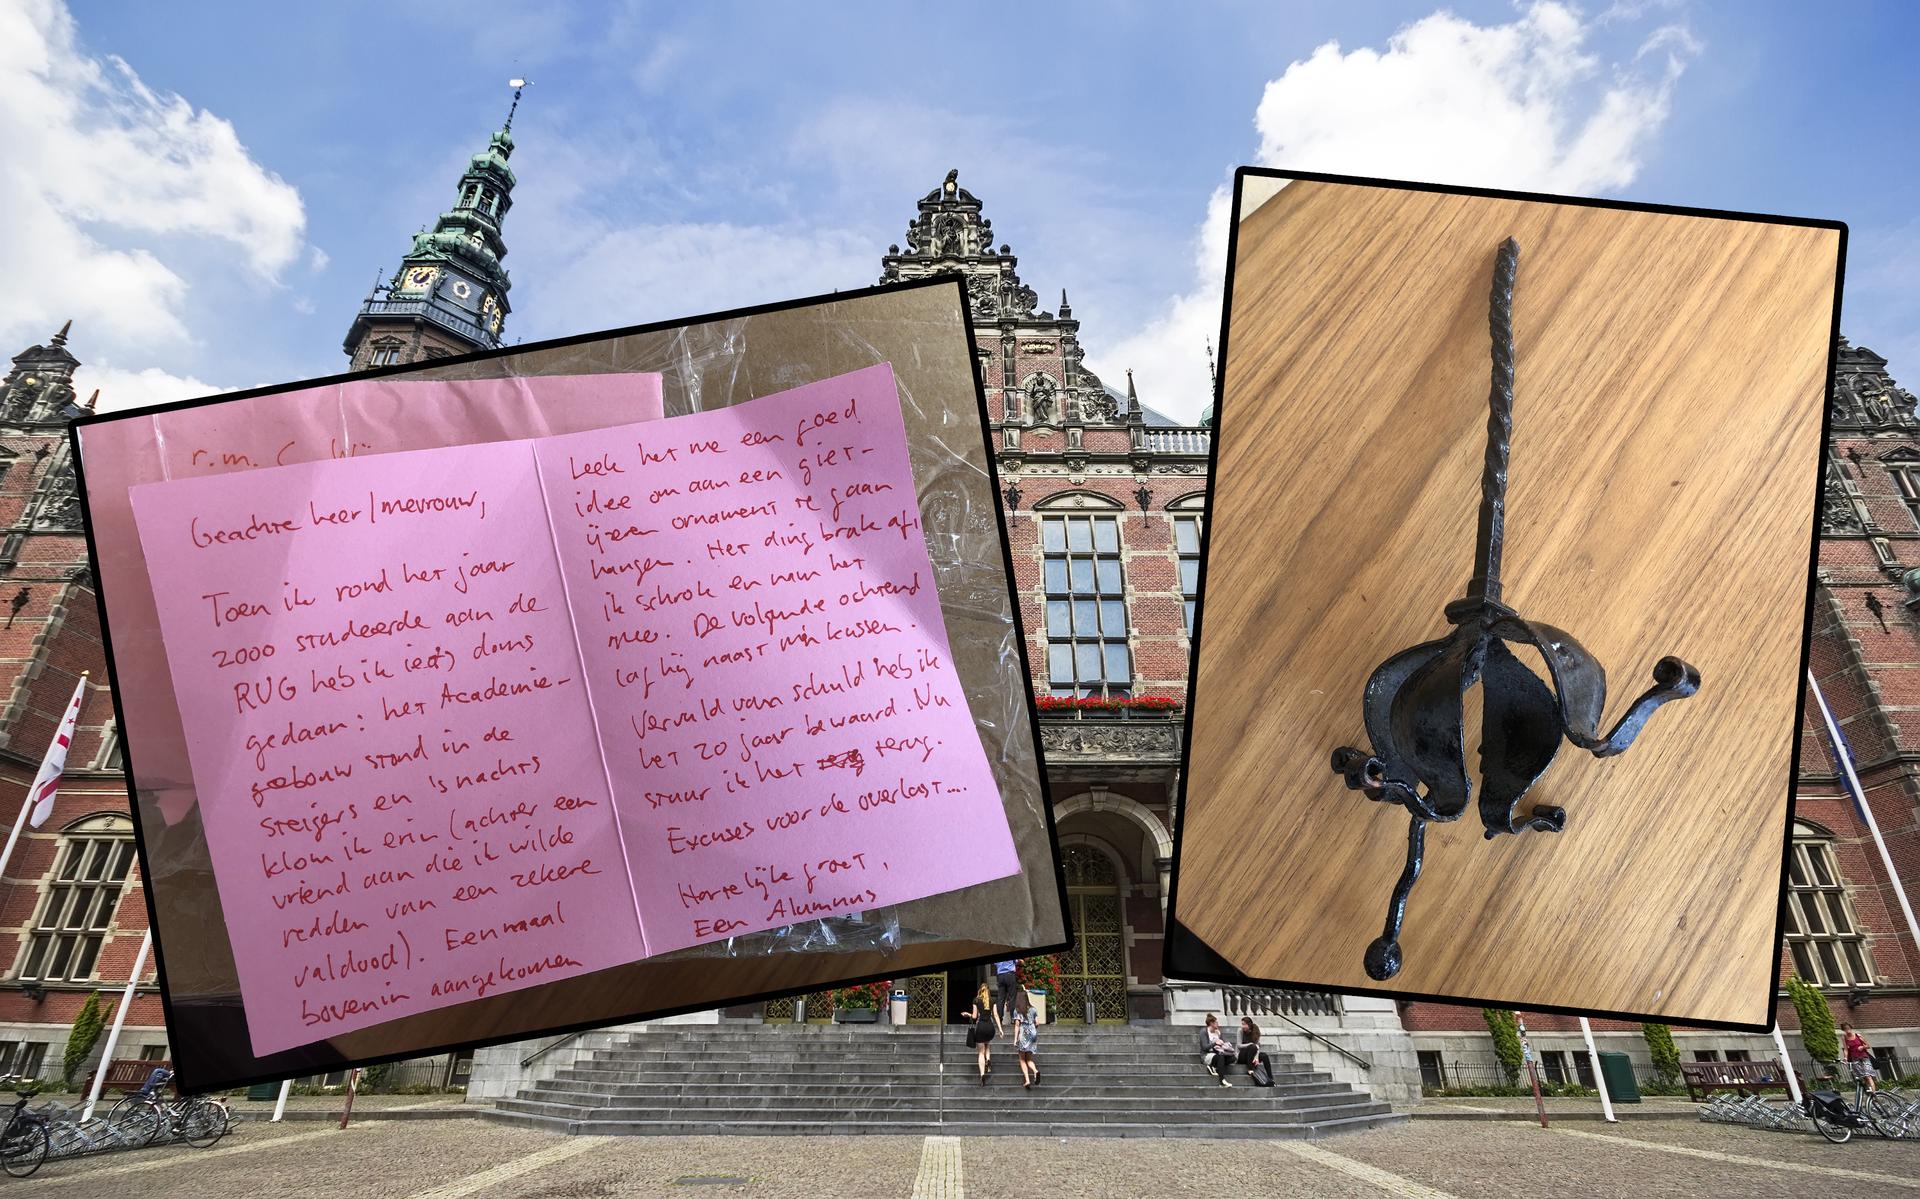 r.m.
Geachte heer/mevrouw,
Toen ik rond het jaar
2000 studeerde aan de
RUG heb ik iets doms
gedaan: het Academie-
gebouw stond in de
steigers en 's nachts
klom ik erin (achter een
vriend aan die ik wilde
redden van een zekere
valdood). Eenmaal
bovenin aangekomen
Leek het me een goed
idee om aan een giet-
ijzeren ornament te gaan
hangen. Het ding brak af,
ik schrok en nam het
mee. De volgende ochtend
lag hij naast m'n kussen.
Vervuld van schuld heb ik
het 20 jaar bewaard. Nu
stuur ik het terug.
Excuses voor de overlast....
Hartelijke groet,
Een Alumnus